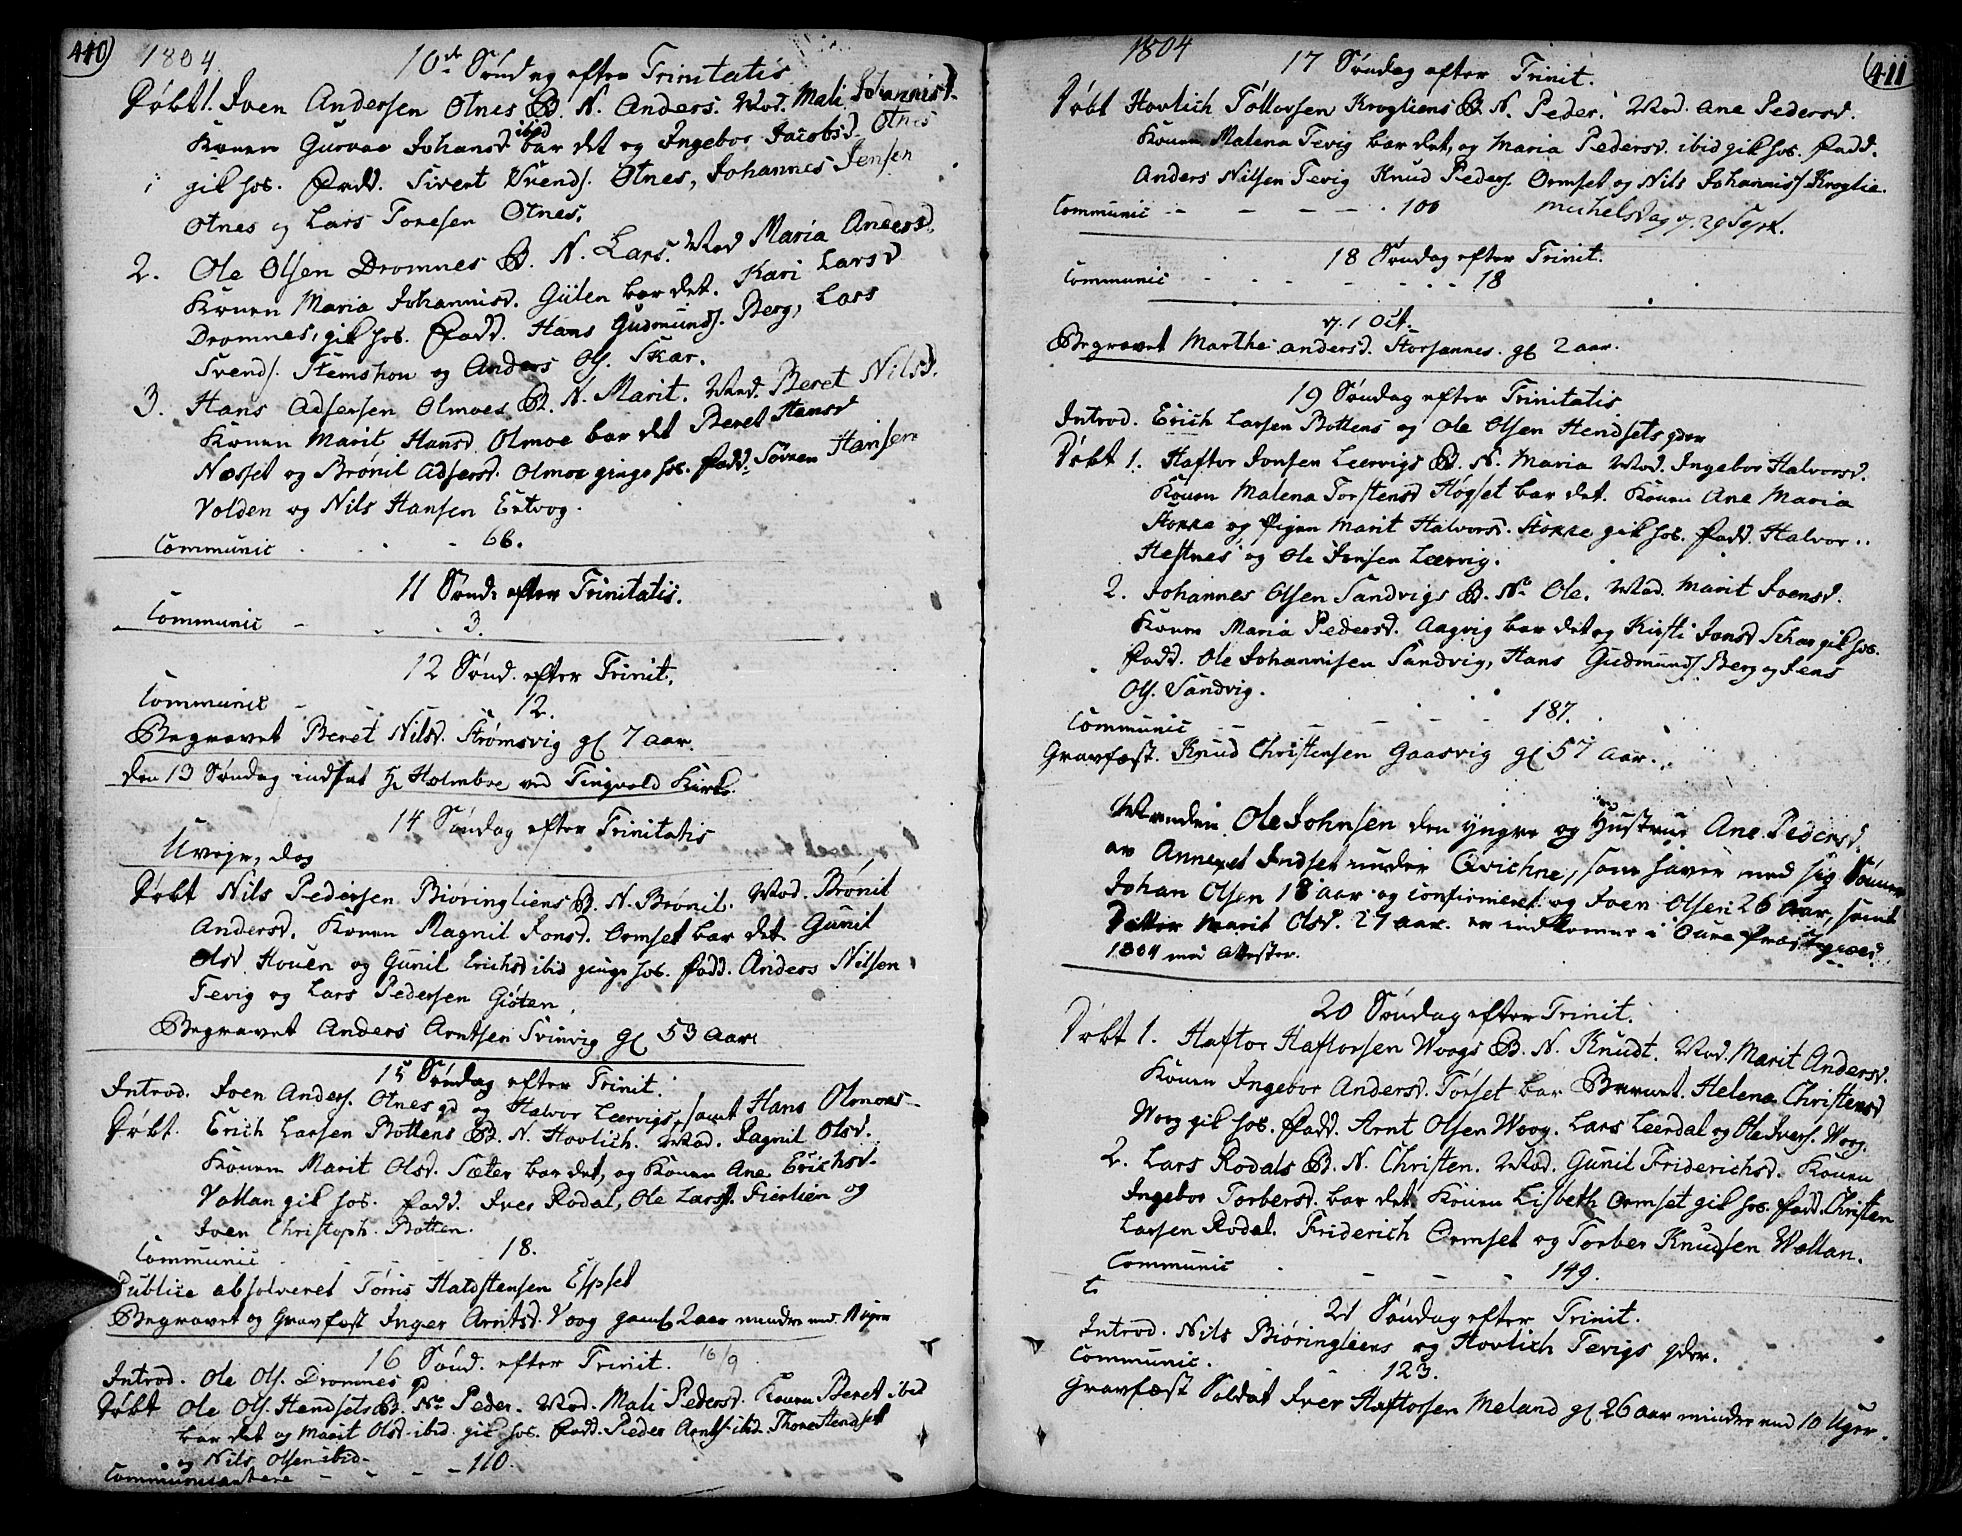 410
1804
10de Søndag efter Trinitatis
Døbt 1. Iven Andersen Otnes B. N. Anders. Mod. Mali Johannisd.
Konen Guroe Johansd. ibid bar det og Ingebor Jacobsd. Otnes
gik hos. Fadd. Sivert Svends. Otnes, Johannes Jensen
Otnes og Lars Toresen Otnes.
2. Ole Olsen Dromnes B. N. Lars. Mod Maria Andersd.
Konen Maria Johannisd. Gülen bar det. Kari Larsd
Dromnes, gik hos. Fadd. Hans Gudmunds. Berg, Lars
Svends. Stemshou og Anders Ols. Skar.
3. Hans Adsersen Olmoes B. N. Marit. Mod. Beret Nilsd.
Konen Marit Hansd Olmoe bar det Beret Hansd
Nesset og Brønil Adsersd. Olmoe ginge hos. Fadd. Søren Hansen
Volden og Nils Hansen Ertvog.
Communic . . . - 66.
11 Sønd. efter Trinitatis.
Communic - - - 3.
12 Sønd. efter Trinit.
Communic - - 12.
Begravet Beret Nilsd. Strømsvig gl 7 aar.
Den 13 Søndag indsat Hr Holmboe ved Tingvold Kirke.
14 Søndag efter Trinitatis
Uvejrs, dag
Døbt Nils Pedersen Biøringliens B. N. Brønil. Mod. Brønil
Andersd. Konen Magnil Jonsd. Ormset bar det Gunil
Olsd. Houen og Gunil Erichsd ibid ginge hos. Fadd. Anders Nilsen
Tevig og Lars Pedersen Giøten
Begravet Anders Arntsen Svinvig gl 53 aar.
15 Søndag efter Trinit.
Introd. Iven Anders. Otnes gd og Halvor Leervigs, samt Hans Olmoes-
Døbt. Erich Larsen Bottens B. N. Hovlich. Mod. Ragnil Olsd.
Konen Marit Olsd. Sæter bar det, og Konen Ane Erichsd.
Vollan gik hos. Fadd. Iver Rodal, Ole Lars. Fierlien og
Iven Christoph. Botten.
Communic - - - 18.
Publice absolveret Tørris Haldstensen Espset
Begravet og Gravfæst Inger Arntsd. Voog gaml 2 aar mindre end Uger
16 Sønd. efter Trinit. 16/9
Introd. Ole Ols. Dromnes gd
Døbt Ole Ols. Hendsets B. Nn Peder. Mod. Mali Pedersd. Konen Beret ibid
bar det og Marit Olsd. ibid. gik hos. Fadd. Peder Arnts. ibid. Thore Hendset
og Nils Olsen ibid.
Communicantere - - - - 110.
1804
411
17 Søndag efter Trinit.
Døbt Hovlich Tollorsen Krogliens B. N. Peder. Mod. Ane Pedersd.
Konen Malena Tevig bar det, og Maria Pedersd. ibid gik hos. Fadd.
Anders Nilsen Tevig Knud Peders. Ormset og Nils Johanniss. Kroglie.
Communic - - - - . 100 Michelsdag d. 29 Sept.
18 Søndag efter Trinit.
Communic - - - - 18
d. 1 Oct.
Begravet Marthe Andersd. Storsannes. gl 2 aar.
19 Søndag efter Trinitatis
Introd. Erich Larsen Bottens og Ole Olsen Hendsets gder
Døbt 1. Haftor Jonsen Leervigs B. N. Maria Mod. Ingebor Halvorsd.
Konen Malena Torstensd Høgset bar det. Konen Ane Maria
Stokke og Pigen Marit Halvorsd. Stokke gik hos. Fadd. Halvor
Hestnes og Ole Jonsen Leervig.
2. Johannes Olsen Sandvigs B. Nn Ole. Mod. Marit Ivensd.
Konen Maria Pedersd. Aagvig bar det og Kirsti Jonsd Skar gik hos.
Fadd. Ole Johannisen Sandvig, Hans Gudmunds. Berg og Jens
Ols. Sandvig.
Communic - - - - 187.
Gravfæst. Knud Christensen Gaasvig gl 57 aar.
Manden Ole Johnsen den yngre og Hustrue Ane Pedersd.
av Annexet Indset under Qvichne, som haver med sig Sønnen
Johan Olsen 18 aar og confirmeret og Iven Olsen 26 aar, samt
Datter Marit Olsd. 27 aar. er indkomne i Oure Præstegield
1804 med Attester.
20 Søndag efter Trinit.
Døbt 1. Haftor Haftorsen Woogs B. N. Knudt. Mod. Marit Andersd.
Konen Ingebor Andersd. Torset bar Barnet. Helena Christensd
Woog gik hos. Fadd. Arnt Olsen Woog. Lars Leerdal og Ole Ivers. Woog.
2. Lars Rodals B. N. Christen. Mod. Gunil Friderichsd. Konen
Ingebor Torbersd. bar det. Konen Lisbeth Ormset gik hos. Fadd. Christen
Larsen Rodal. Friderich Ormset og Torber Knudsen Wollan.
Communic . - - - 149.
21 Søndag efter Trinit.
Introd. Nils Biøringliens og Hovlich Tevigs gder.
Communic. 123.
Gravfæst Soldat Iver Haftorsen Meland gl 26 aar mindre end 10 Uger.